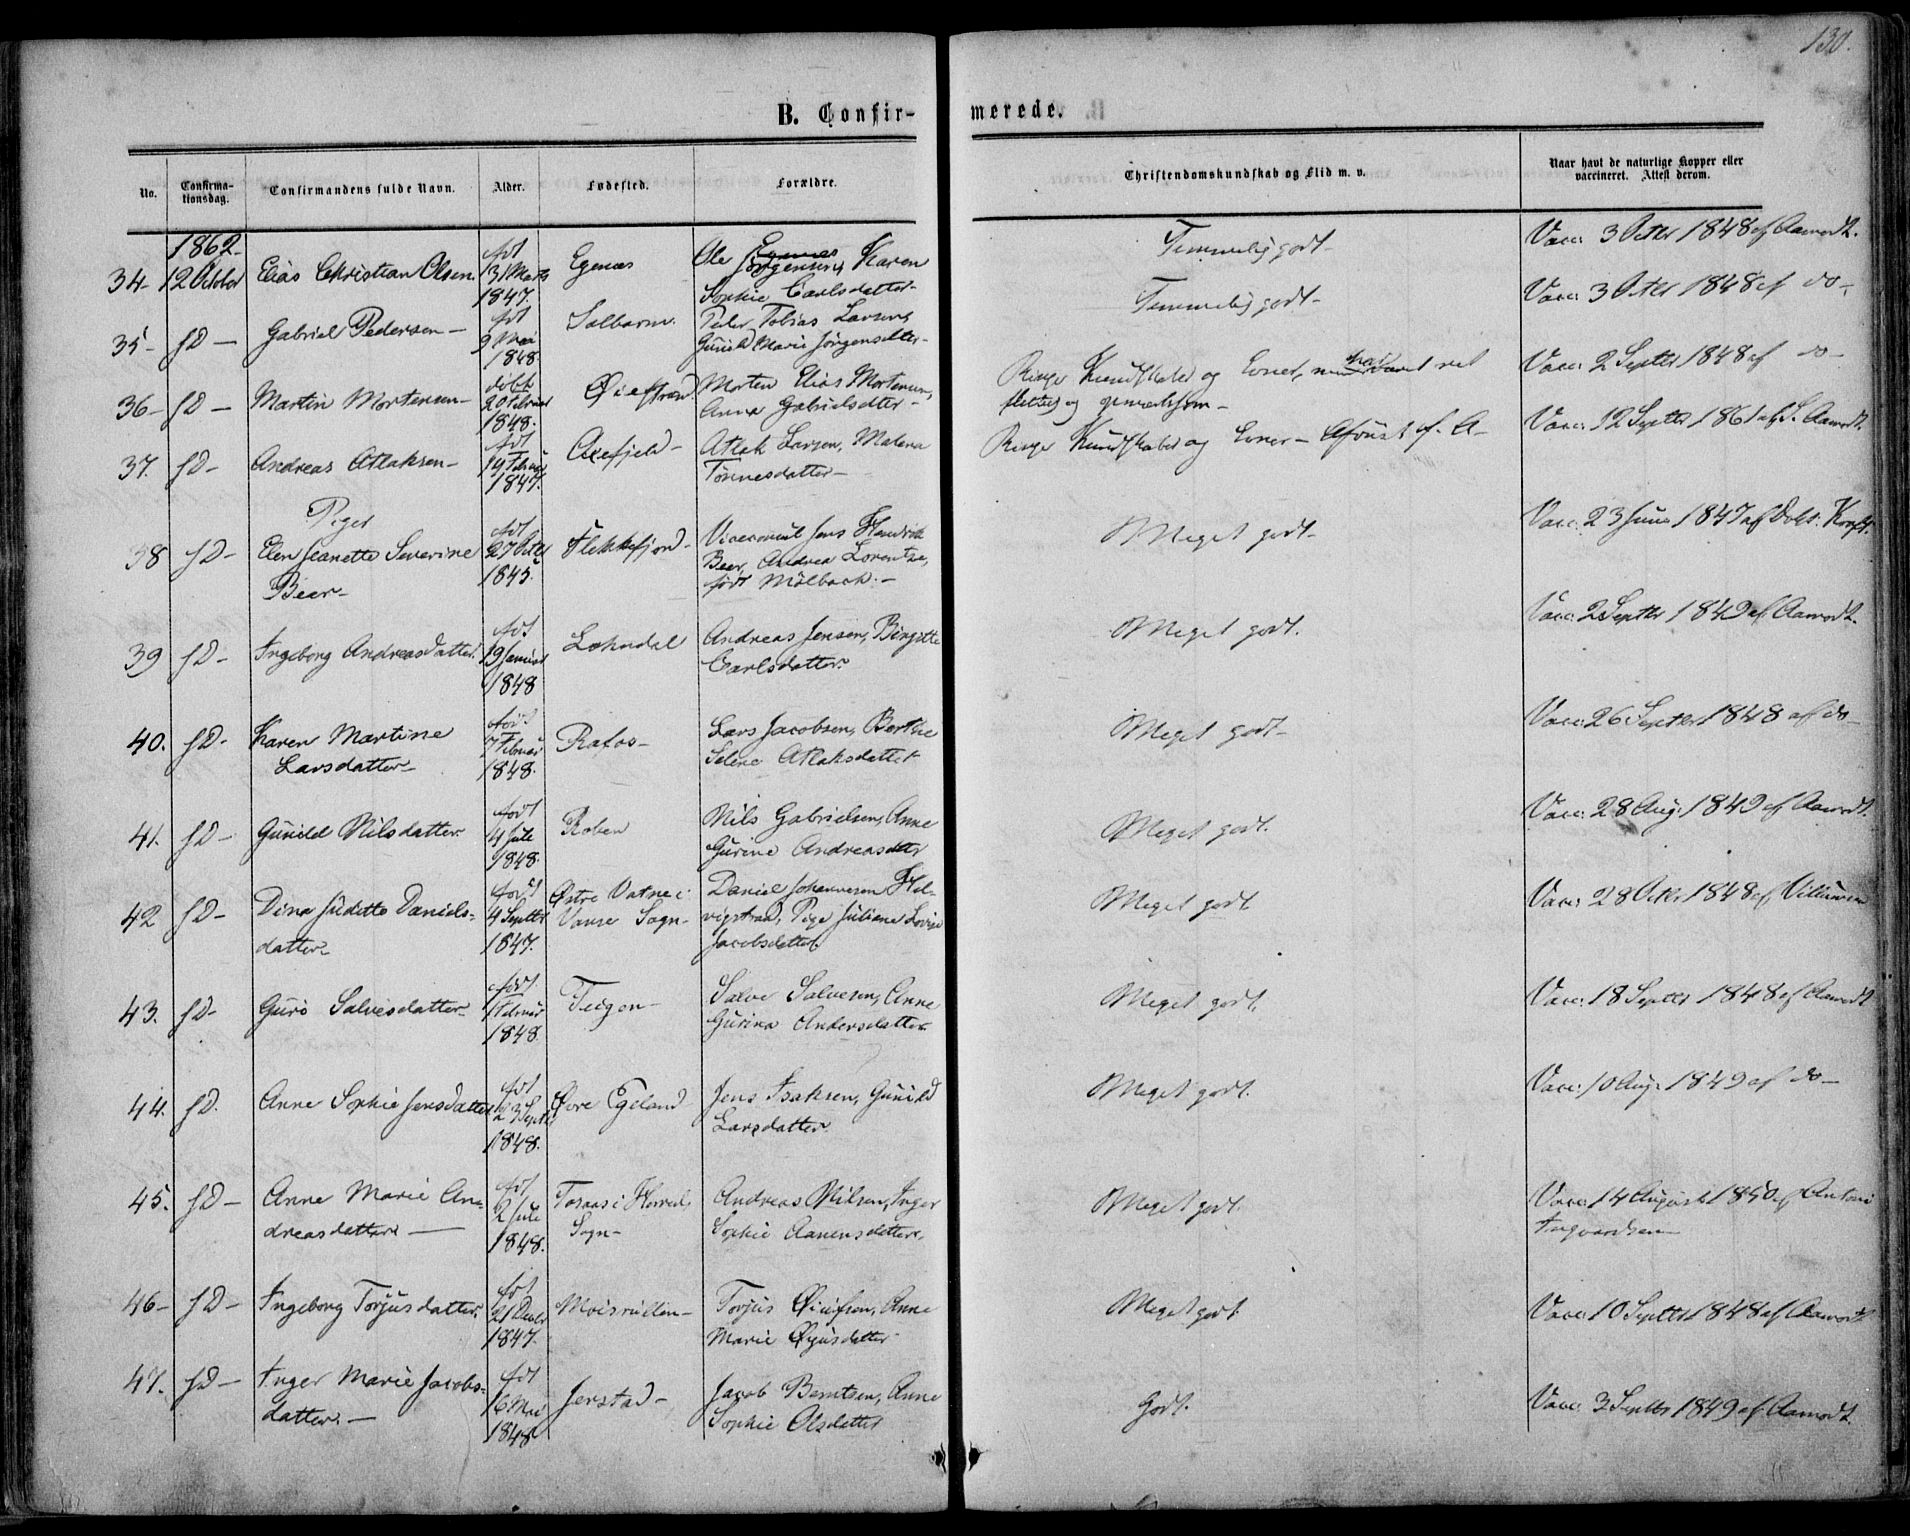 130.
B. Confir- merede.
No. Confirma-tionsdag. Confirmandens fulde Navn. Alder. Fødested. Forældre. Christendomskundskab og Flid m. v. Naar havt de naturlige Kopper eller vaccineret. Attest derom.
1862
34- 12 Octobr Elias Christian Olsen. født 31 Marts 1847. Egenæs Ole Jørgensen, Karen Sophie Carlsdatter- Temmelig godt- Vacc: 3 Octbr 1848 af Aamodt.
35- JD- Gabriel Pedersen- født 9 Mai 1848. Peder Tobias Larsen, Gunild Marie Jørgensdtter- Temmelig godt- Vacc: 3 Octbr 1848 af do-
36- JD- Martin Mortensen- døbt 20 Februar 1848. Øiestrand Morten Elias Mortensen, Anna Gabrielsdtter- Ringe Kundskaber og Evner, men har været ret flittig og opmærksom- Vacc: 2 Septbr 1848 af do-
37. JD- Andreas Atlaksen- født 19 Februar 1847. Axefjeld- Atlak Larsen, Malena Tønnesdatter- Ringe Kundskaber og Evner- Vacc: 12 Septbr 1861 af S. Aamodt.
Piger
38 JD- Elen Jeanette Severine Beer- født 27 Octbr 1845. Flekkefjord- Viceconsul Jens Hendrik Beer, Andrea Lorentze, født Mølbach.- Meget godt- Vacc: 23 Juni 1847 af Dokt: Krafft.
39 JD- Ingeborg Andreasdatter. født 19 Januar 1848 Lohndal Andreas Jensen, Birgitte Carlsdatter. Meget godt. Vacc: 2 Septbr 1849 af Aamodt.
40. JD- Karen Martine Larsdatter- født 7 Februar 1848. Rafos- Lars Jacobsen, Berthe Selene Atlaksdatter Meget godt- Vacc: 26 Septbr 1848 af do-
41. JD- Gunild Nilsdatter. født 4 Jule 1848. Roben Nils Gabrielsen, Anne Gurine Andreasdtter Meget godt. Vacc: 28 Aug. 1849 af Aamodt.
42 JD- Dina Juditte Daniels-datter- født 4 Septbr 1847. Østre Vatne i Vanse Sogn- Daniel Johannesen Hel-vigstrad, Pige Juliane Lovise Jacobsdatter. Meget godt Vacc: 28 Octbr 1848 af Villumsen
43. JD- Guro Salvesdatter- født 1 Februar 1848. Teigen- Salve Salvesen, Anne Gurina Andersdatter. Meget godt. Vacc: 18 Septbr 1848 af Aamodt
44. JD. Anne Sophie Jensdatter født 23 Septbr 1848. Øvre Egeland Jens Isaksen, Gunild Larsdatter. Meget godt. Vacc: 10 Aug. 1849 af do-
45. JD- Anne Marie An-dreasdatter- født 2 Jule 1848. i Herred Sogn- Andreas Nilsen, Inger Sophie Aanensdatter. Meget godt. Vacc: 14 August 1850 af Antoni Ingvardsen
46- JD- Ingeborg Torjusdatter. født 21 Decbr 1847. Moisvillen- Torjus Øiulfsen, Anne Marie Øjusdatter Meget godt Vacc: 10 Septbr 1848 af Aamodt
47. JD- Inger Marie Jacobs-datter.- født 6 Mai 1848 Jerstad- Jacob Berntsen, Anne Sophie Olsdatter Godt. Vacc: 3 Septbr 1849 af Aamodt.